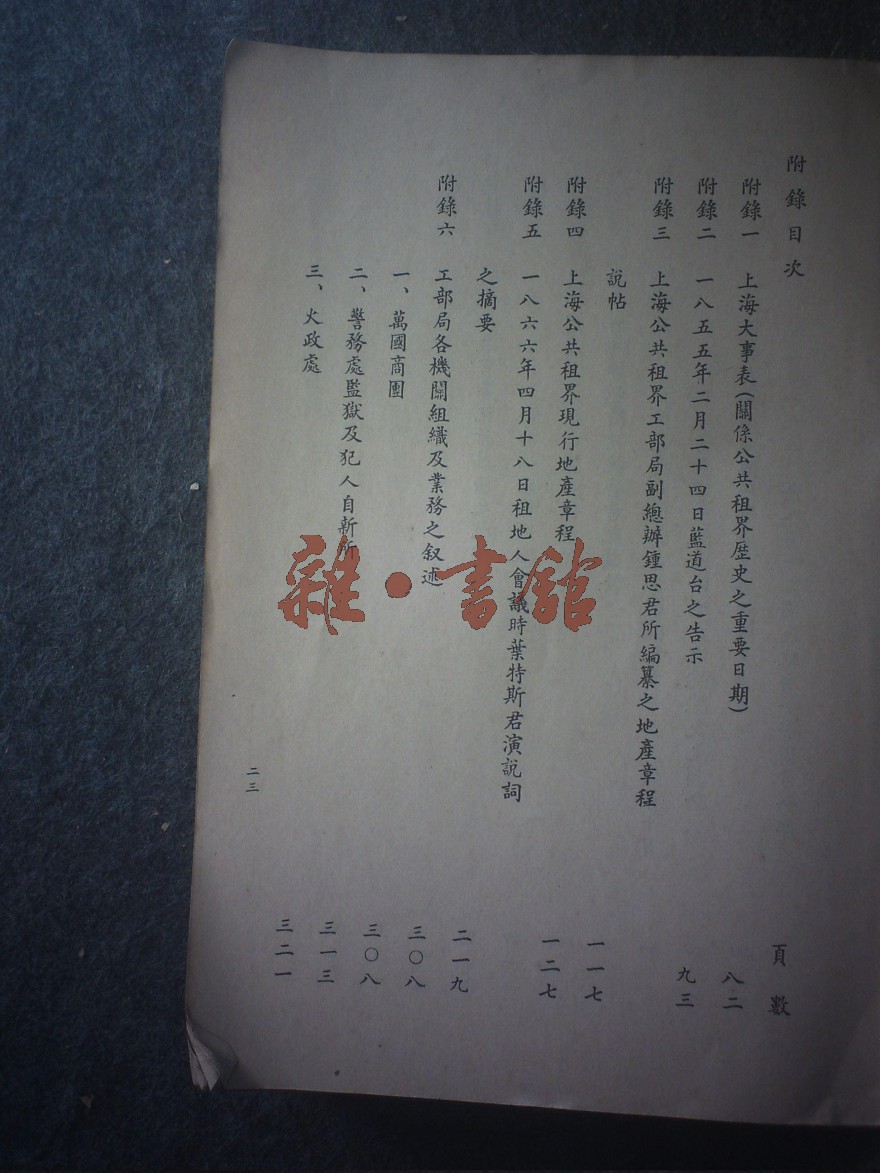 附錄目次 頁數
附錄一 上海大事表(關係公共租界歷史之重要日期) 八二
附錄二 一八五五年二月二十四日藍道台之告示 九三
附錄三 上海公共租界工部局副總辦鍾思君所編纂之地產章程
說帖 一一七
附錄四 上海公共租界現行地產章程 一二七
附錄五 一八六六年四月十八日租地人會議時葉特斯君演說詞
之摘要 二一九
附錄六 工部局各機關組織及業務之叙述 三〇八
一、萬國商團 三〇八
二、警務處監獄及犯人自新所 三一三
三、火政處 三二一
二三
雜·書館